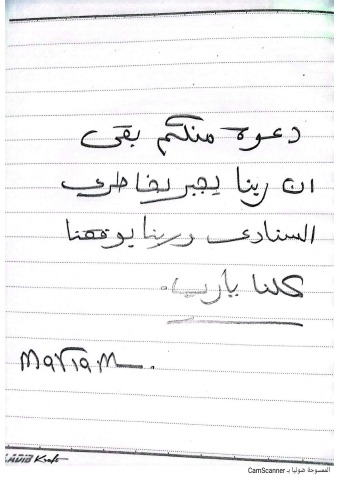 دعوة منكم بقى
ان ربنا يجبر بخاطري
السنادى وربنا يوفقنا
كلنا يارب.
Mariam
الممسوحة ضوئيا بـ CamScanner